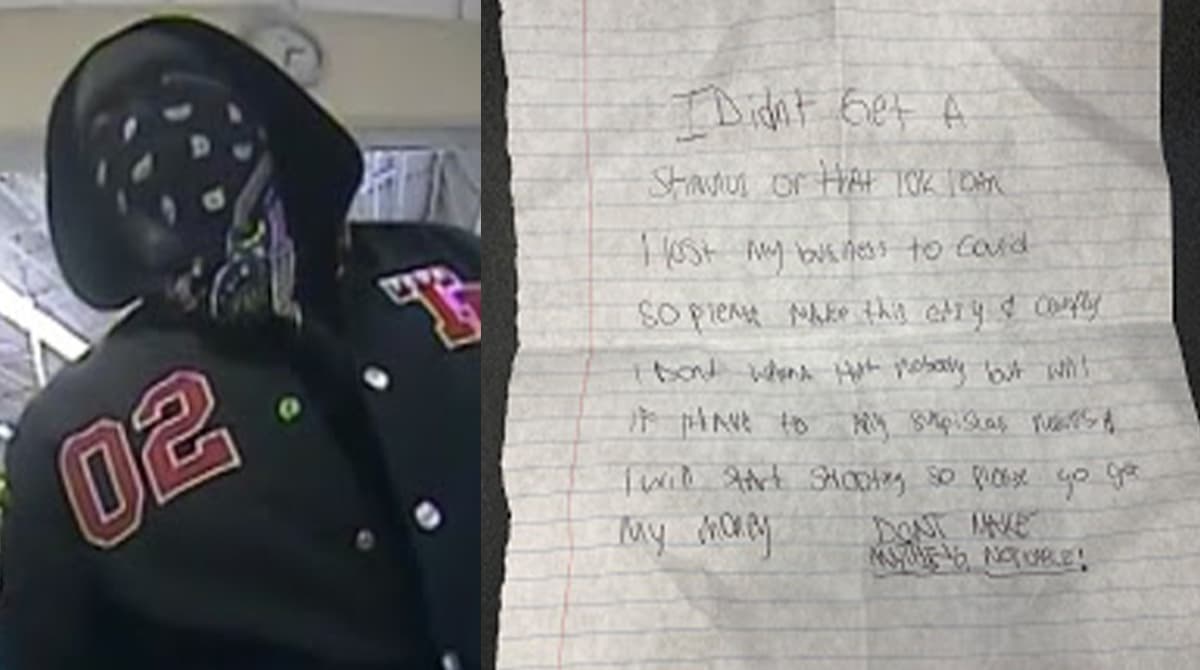 02
I Didnt Get A
Stimulus or that 10k loan
I lost my business to Covid
So please make this easy & comply
I Dont wanna Hurt nobody but will
if I HAVE to Any
I will start shooting so please go get
My money
DONT MAKE
ANYTHING NOTICABLE!